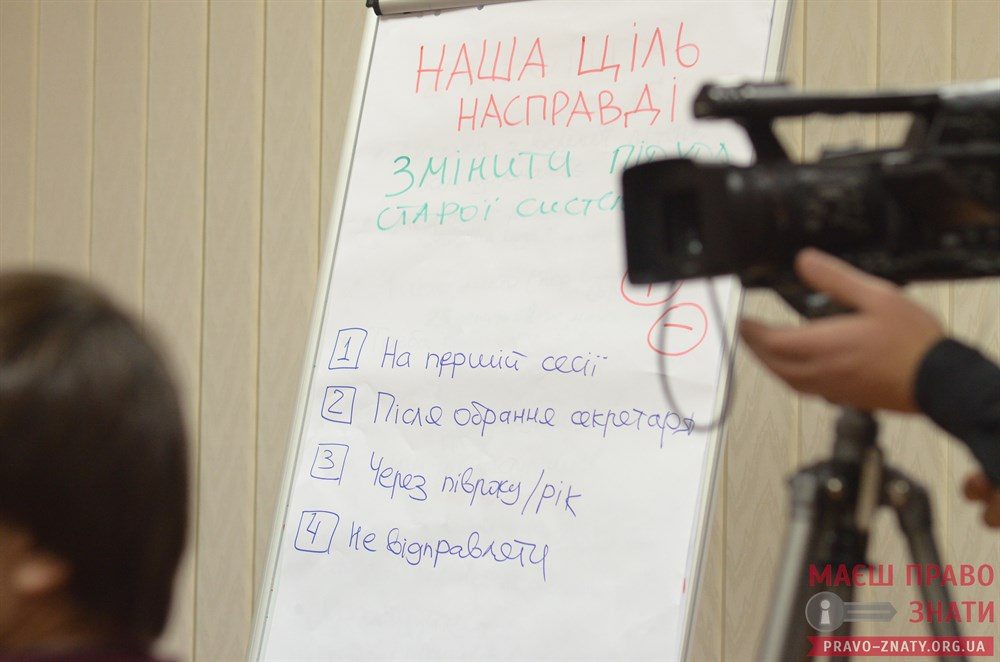 НАША ЦІЛЬ
НАСПРАВДІ
ЗМІНИТИ ПІДХОД
СТАРОЇ
1 На першій сесії
2 Після обрання секретаря
3 Через півроку/рік
4 Не відправляти
МАЄШ ПРАВО
ЗНАТИ
PRAVO-ZNATY.ORG.UA